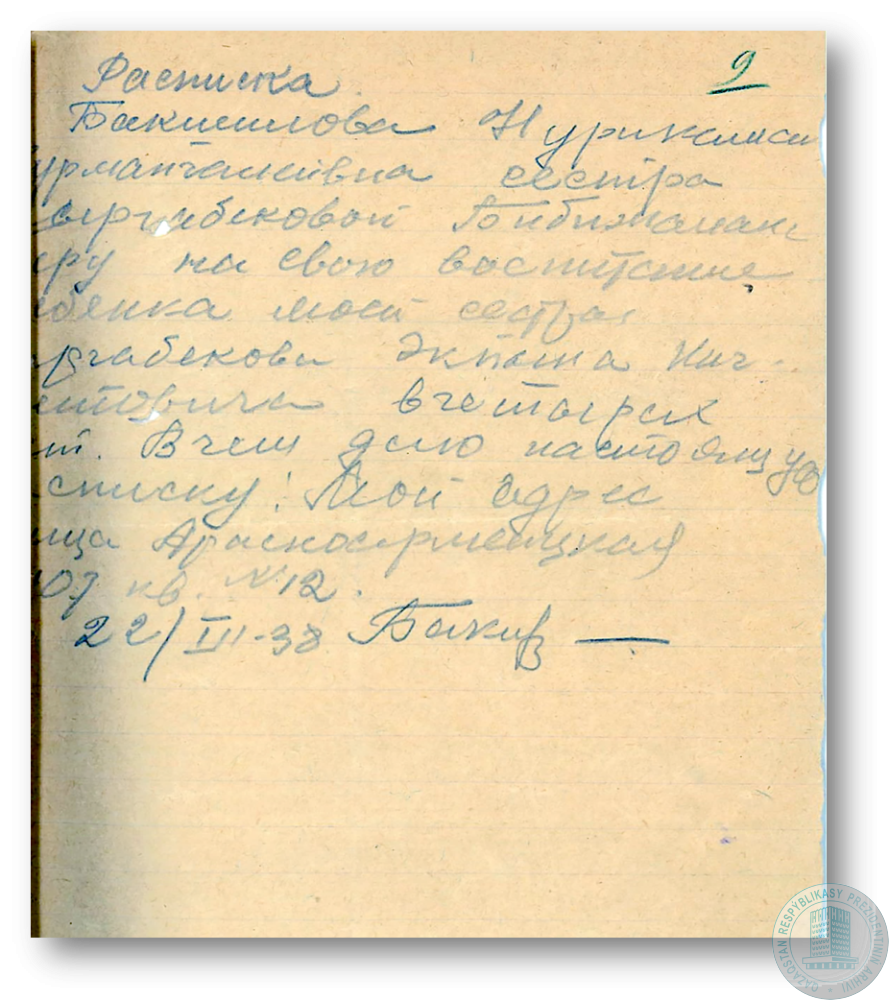 9
Расписка.
Бакишлова Нурикамал
урманчаливна сестра
ыргабековой Бибижамал
еру на свою воспитание
ебенка моей сестры
ыргабекова Экпына Нич-
ентовича вчетырех
ет. В чем даю настоящую
списку. Мой адрес
лица Араскосармейцкая
107 кв. №12.
22/III-38 Бакив
QAZAQSTAN RESPÝBLIKASY PREZIDENTINIŃ ARHIVI